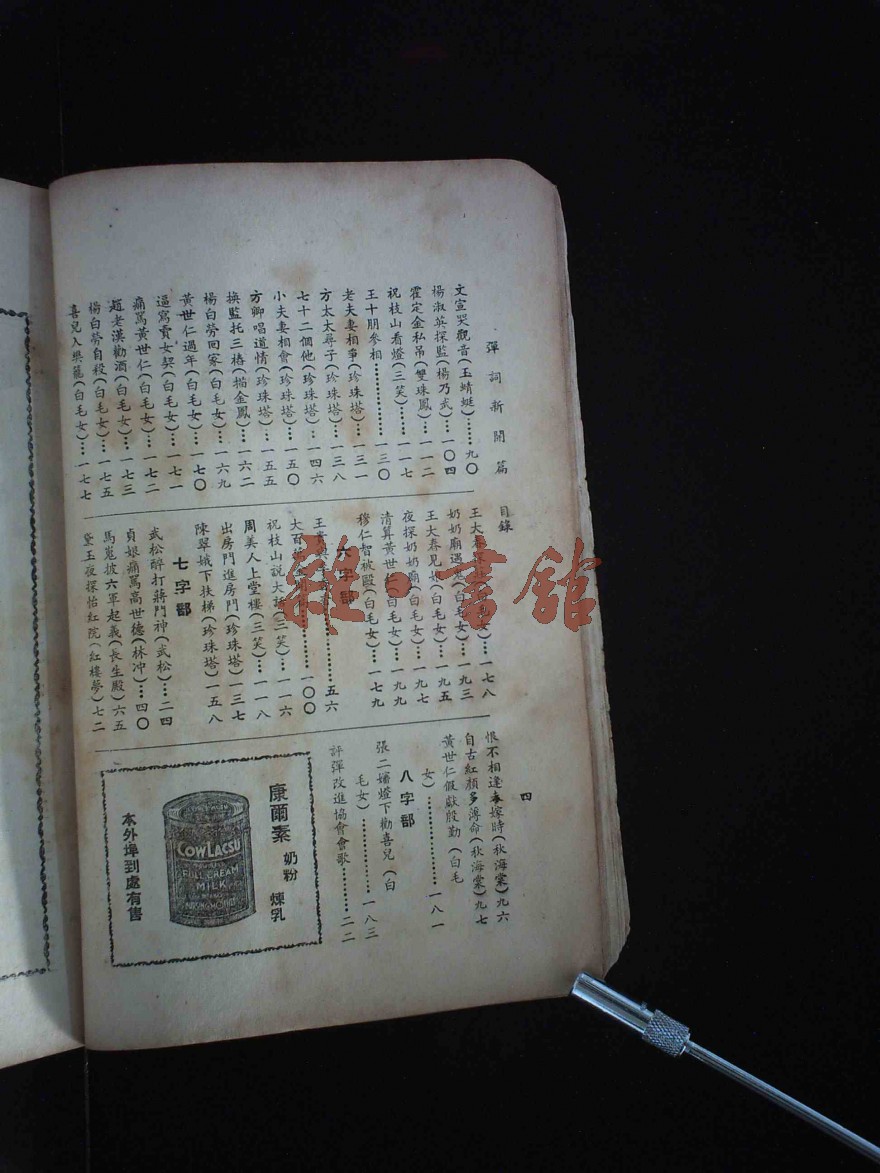 彈詞新開篇
目錄
四
文宣哭觀音(玉蜻蜓)……九〇
楊淑英探監(楊乃武)…一〇四
霍定金私吊(雙珠鳳)…一一二
祝枝山看燈(三笑)……一一七
王十朋參相………………一三〇
老夫妻相爭(珍珠塔)…一三一
方太太尋子(珍珠塔)…一三八
七十二個他(珍珠塔)…一四六
小夫妻相會(珍珠塔)…一五〇
方卿唱道情(珍珠塔)…一五五
換監托三樁(描金鳳)…一六二
楊白勞回家(白毛女)…一六九
黃世仁過年(白毛女)…一七〇
逼寫賣女契(白毛女)…一七一
痛罵黃世仁(白毛女)…一七二
趙老漢勸酒(白毛女)…一七三
楊白勞自殺(白毛女)…一七五
喜兒入樊籠(白毛女)…一七七
王大春 女)…一七八
奶奶廟遇 (白毛女)…一九三
王大春見奶 (白毛女)…一九五
夜探奶奶廟(白毛女)…一九七
清算黃世仁(白毛女)…一九九
穆仁智被毆(白毛女)…一七九
六字部
王 …………五六
大百 …………一〇〇
祝枝山說大話(三笑)…一一六
周美人上堂樓(三笑)…一一八
出房門進房門(珍珠塔)一三七
陳翠娥下扶梯(珍珠塔)一五八
七字部
武松醉打蔣門神(武松)…二四
貞娘痛罵高世德(林冲)…四〇
馬嵬披六軍起義(長生殿)六五
黛玉夜探怡紅院(紅樓夢)七二
恨不相逢未嫁時(秋海棠)九六
自古紅顏多薄命(秋海棠)九七
黃世仁假獻殷勤(白毛
女)……………一八一
八字部
張二嬸燈下勸喜兒(白
毛女)……………一八三
評彈改進協會會歌………二二
康爾素 奶粉 煉乳
COWLACSU
FULL CREAM
MILK
本外埠到處有售
雜·書館